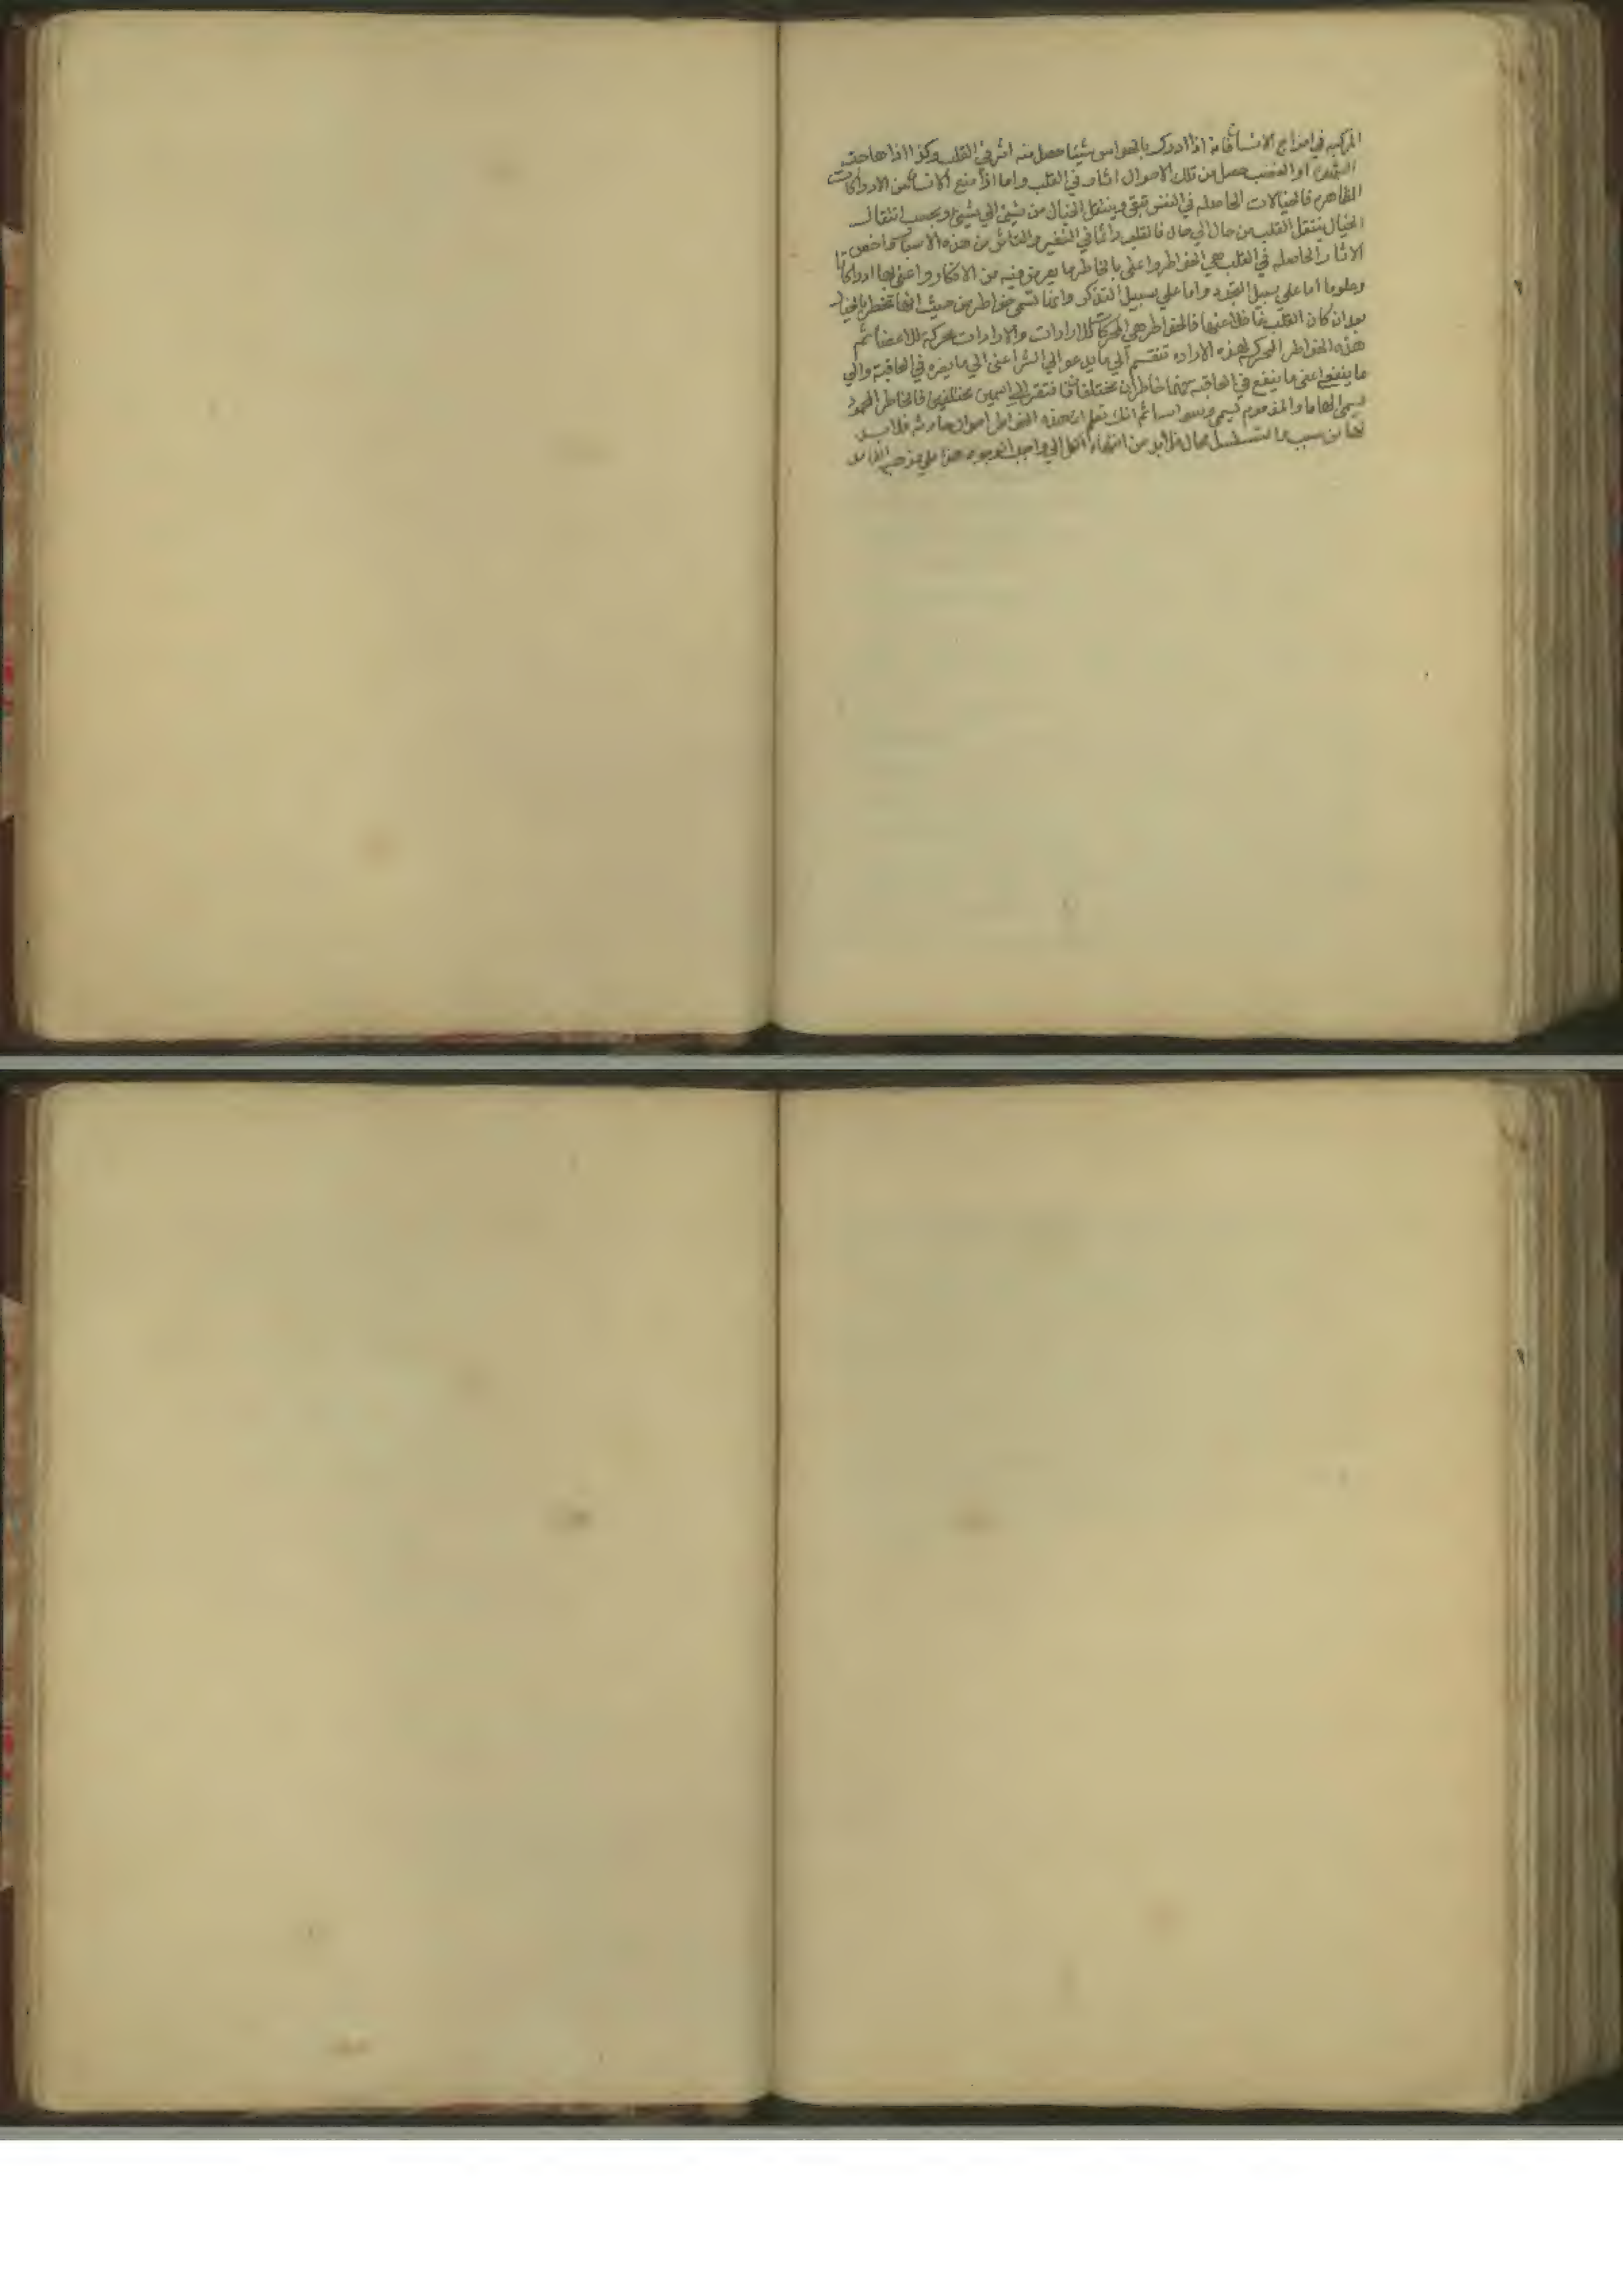 المركبه في امزاج الانسان فانه اذا ادرك بالحواس شيئا حصل منه اثر في القلب وكذا اذا هاجت
الشهوة او الغضب حصل من تلك الاحوال اثار في القلب واما اذا منع الانسان عن الادراكات
الظاهره فالخيالات الحاصله في النفس تبقي وينتقل الخيال من شيئ الي شيئ وبحسب انتقال
الخيال ينتقل القلب من حال الي حال فالقلب دائما في التغير والتاثر من هذه الاسباب واخص
الاثار الحاصله في القلب هي الخواطر واعني بالخاطر ما يعرض فيه من الافكار واعني بها ادراكاتا
وعلوما اما علي سبيل التجدد واما علي سبيل التذكر وانما تسمي خواطر من حيث انها تخطر بالخيال
بعد ان كان القلب غافلا عنها فالخواطر هي المحركات للارادات والارادات محركة للاعضا ثم
هذه الخواطر المحركه لهذه الاراده تنقسم الي ما يدعو الي الشر اعني الي ما يضره في العاقبة والي
ما ينفع اعني ما ينفع في العاقبه فهما خاطران مختلفان فافتقرا الي اسمين مختلفين فالخاطر المحمود
يسمي الهاما والمذموم يسمي وسواسا ثم انك تعلم ان هذه الخواطر احوال حادثه فلا بد
لها من سبب والتسلسل محال فلا بد من انتهاء الكل الي واجب الوجود هذا